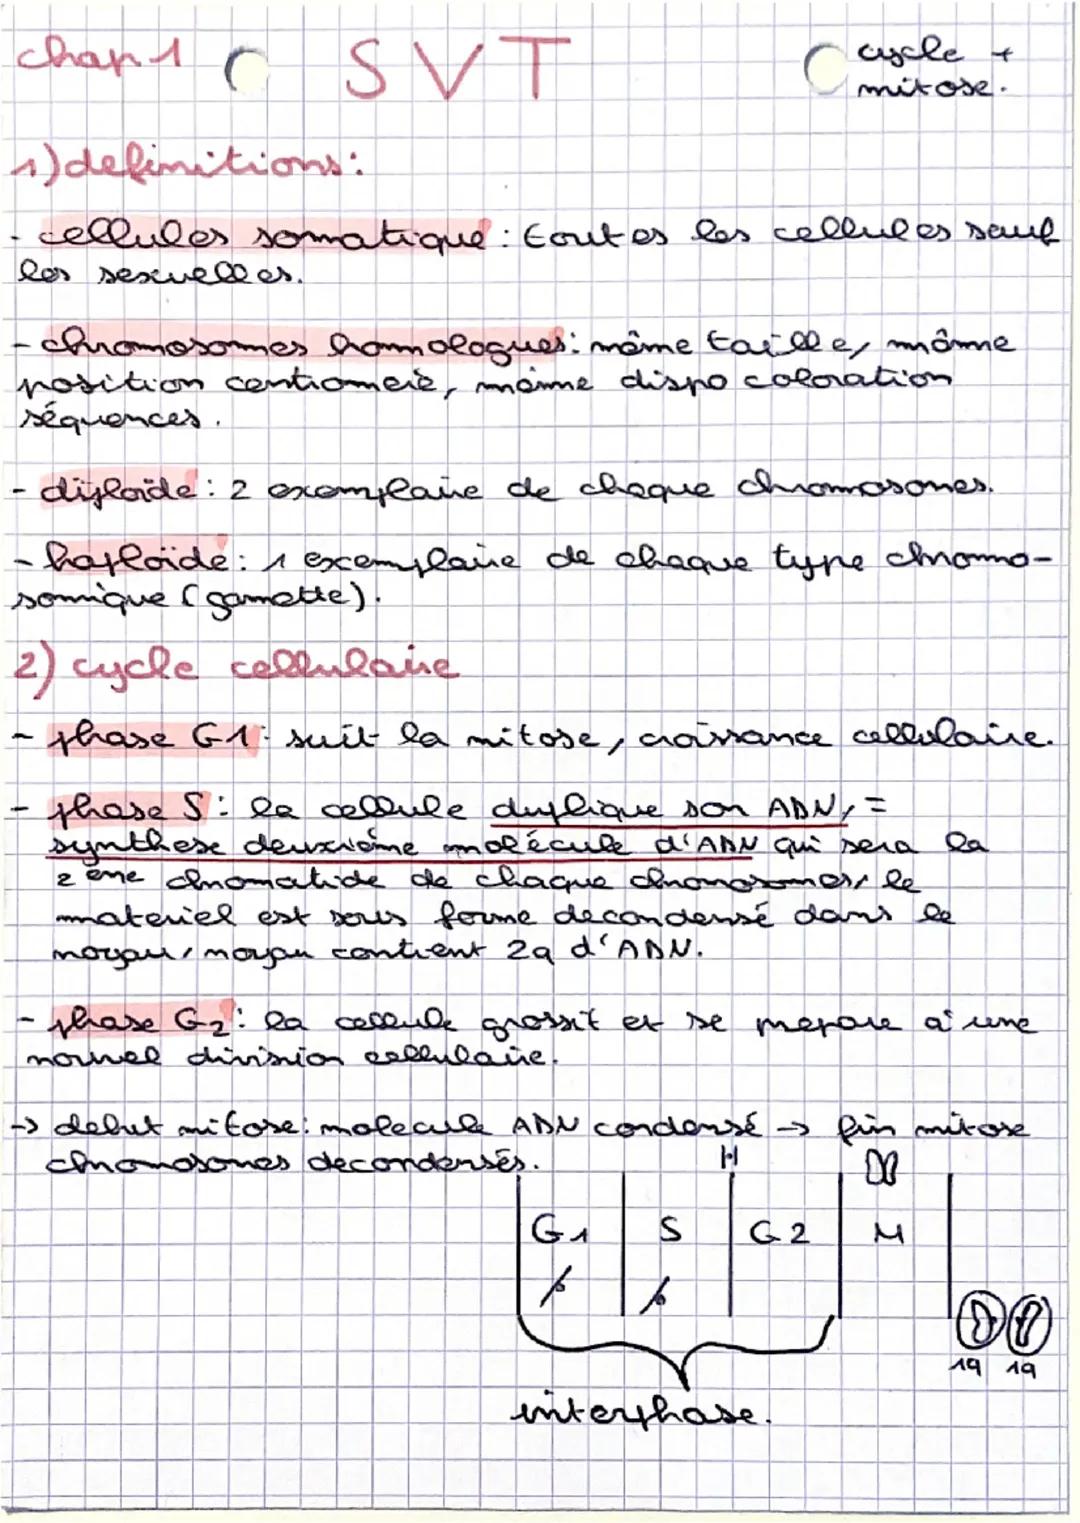 chap 1
SVT
cycle +
mitose.
1) definitions:
- cellules somatique : toutes les cellules sauf
les sexuelles.
- chromosomes homologues: même taille, même
position centromere, même dispo coloration
séquences.
- diploïde : 2 exemplaire de chaque chromosomes.
- haploïde: 1 exemplaire de chaque type chromo-
somique (gamette).
2) cycle cellulaire
- phase G1: suit la mitose, croissance cellulaire.
- phase S: la cellule duplique son ADN, =
synthese deuxième molécule d'ADN qui sera la
2 ème chromatide de chaque chromosomes, le
materiel est sous forme decondensé dans le
noyau, noyau contient 2q d'ADN.
- phase G2: la cellule grossit et se prepare à une
nouvel division cellulaire.
-> debut mitose: molecule ADN condensé -> fin mitose
chromosomes decondensés.
G1 S G2 M
1q 1q
interphase.